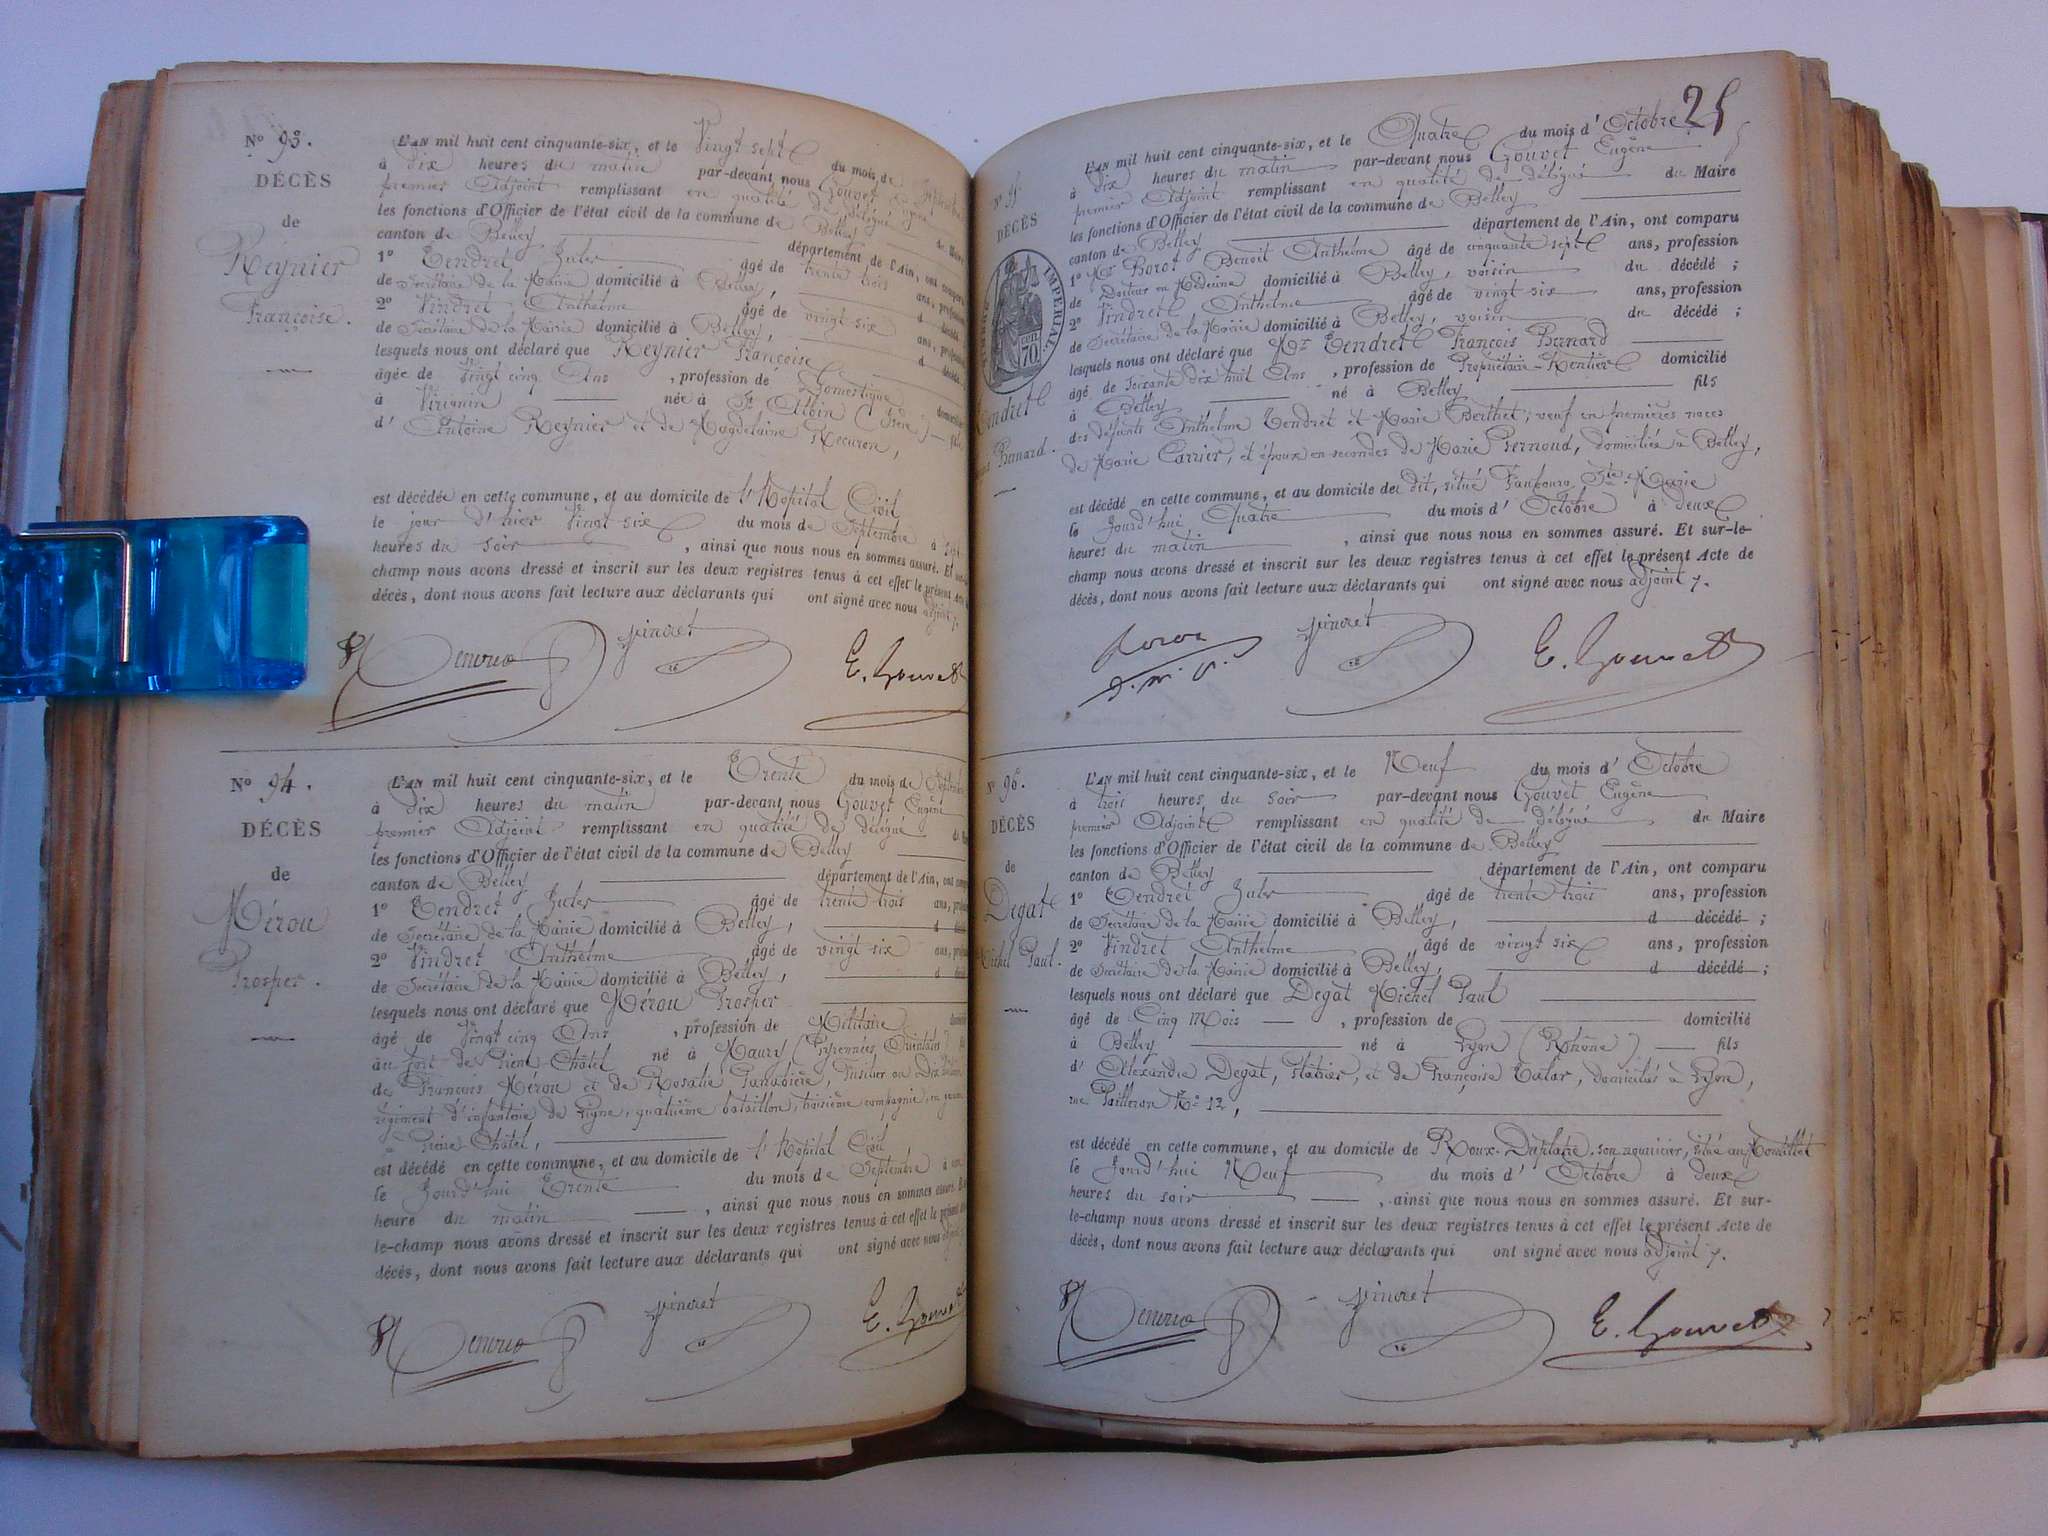 Nº 93.
DÉCÈS
de
Reynier
Françoise.
L'AN mil huit cent cinquante-six, et le Vingt sept du mois de
à Dix heures du matin par-devant nous Gouvet Eugène
premier Adjoint remplissant en qualité de délégué du Maire
les fonctions d'Officier de l'état civil de la commune de Belley
canton de Belley département de l'Ain, ont comparu
1º Tendret Jules âgé de trente trois ans, profession
de Secrétaire de la Mairie domicilié à Belley, d décédé
2º Vindret Anthelme âgé de vingt six ans, profession
de Secrétaire de la Mairie domicilié à Belley, d décédé
lesquels nous ont déclaré que Reynier Françoise
âgée de Vingt cinq Ans, profession de Domestique domiciliée
à Virignin née à St Albin (Isère) fille
d' Antoine Reynier et de Magdelaine Recuron,
est décédée en cette commune, et au domicile de l'Hopital Civil
le jour d'hier Vingt six du mois de Septembre à sept
heures du soir, ainsi que nous nous en sommes assuré. Et sur-le-
champ nous avons dressé et inscrit sur les deux registres tenus à cet effet le présent Acte de
décès, dont nous avons fait lecture aux déclarants qui ont signé avec nous adjoint.
Vindret
E. Gouvet
Nº 94.
DÉCÈS
de
Mérou
Prosper.
L'AN mil huit cent cinquante-six, et le Trente du mois de Septembre
à Dix heures du matin par-devant nous Gouvet Eugène
premier Adjoint remplissant en qualité de délégué du Maire
les fonctions d'Officier de l'état civil de la commune de Belley
canton de Belley département de l'Ain, ont comparu
1º Tendret Jules âgé de trente trois ans, profession
de Secrétaire de la Mairie domicilié à Belley, d décédé
2º Vindret Anthelme âgé de vingt six ans, profession
de Secrétaire de la Mairie domicilié à Belley, d décédé
lesquels nous ont déclaré que Mérou Prosper
âgé de Vingt cinq Ans, profession de Militaire domicilié
au fort de Pierre Châtel, né à Maury (Pyrennées Orientales) fils
de François Mérou et de Rosalie, fusilier au Dix
régiment d'infanterie de Ligne, quatrième bataillon, troisième compagnie, en
à Pierre Châtel,
est décédé en cette commune, et au domicile de l'Hopital Civil
le Jourd'hui Trente du mois de Septembre à une
heure du matin, ainsi que nous nous en sommes assuré. Et sur-
le-champ nous avons dressé et inscrit sur les deux registres tenus à cet effet le présent Acte de
décès, dont nous avons fait lecture aux déclarants qui ont signé avec nous adjoint
Vindret
E. Gouvet
25
Nº 95
DÉCÈS
TIMBRE IMPERIAL
CENT. 70
Tendret
Bernard.
L'AN mil huit cent cinquante-six, et le Quatre du mois d'Octobre
à Dix heures du matin par-devant nous Gouvet Eugène
premier Adjoint remplissant en qualité de délégué du Maire
les fonctions d'Officier de l'état civil de la commune de Belley
canton de Belley département de l'Ain, ont comparu
1º Mr Borot Benoit Anthelme âgé de cinquante sept ans, profession
de Docteur en Médecine domicilié à Belley, voisin du décédé;
2º Vindret Anthelme âgé de vingt six ans, profession
de Secrétaire de la Mairie domicilié à Belley, voisin du décédé;
lesquels nous ont déclaré que Mr Tendret François Bernard
âgé de Soixante dix huit Ans, profession de Propriétaire-Rentier domicilié
à Belley né à Belley fils
des défunts Anthelme Tendret et Marie Berthet; veuf en premières noces
de Marie Carrier, et époux en secondes de Marie Pernoud, domiciliée à Belley,
est décédé en cette commune, et au domicile du dit, situé Faubourg Ste Marie
le Jourd'hui Quatre du mois d'Octobre à deux
heures du matin, ainsi que nous nous en sommes assuré. Et sur-le-
champ nous avons dressé et inscrit sur les deux registres tenus à cet effet le présent Acte de
décès, dont nous avons fait lecture aux déclarants qui ont signé avec nous adjoint.
Vindret
E. Gouvet
Nº 96.
DÉCÈS
de
Degat
Michel Paul.
L'AN mil huit cent cinquante-six, et le Neuf du mois d'Octobre
à trois heures du soir par-devant nous Gouvet Eugène
premier Adjoint remplissant en qualité de délégué du Maire
les fonctions d'Officier de l'état civil de la commune de Belley
canton de Belley département de l'Ain, ont comparu
1º Tendret Jules âgé de trente trois ans, profession
de Secrétaire de la Mairie domicilié à Belley, d décédé;
2º Vindret Anthelme âgé de vingt six ans, profession
de Secrétaire de la Mairie domicilié à Belley, d décédé;
lesquels nous ont déclaré que Degat Michel Paul
âgé de Cinq Mois, profession de domicilié
à Belley né à Lyon (Rhône) fils
d'Alexandre Degat, Plâtrier, et de Françoise, domiciliés à Lyon,
rue Pailleron Nº 12,
est décédé en cette commune, et au domicile de Roux-Duplatre, son nourricier, situé au
le Jourd'hui Neuf du mois d'Octobre à deux
heures du soir, ainsi que nous nous en sommes assuré. Et sur-
le-champ nous avons dressé et inscrit sur les deux registres tenus à cet effet le présent Acte de
décès, dont nous avons fait lecture aux déclarants qui ont signé avec nous adjoint.
Vindret
E. Gouvet